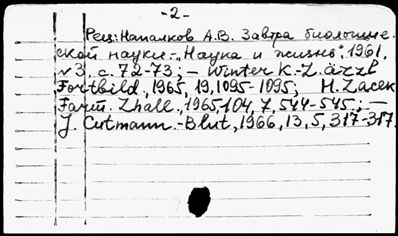 -2-
Рец: Напалков А.В. Завтра биологиче-
ской науки.-„Наука и жизнь", 1961,
N3, с. 72-73; - Winter K.-Z. ärztl
Fortbild, 1965, 19, 1095-1095; H. Zacek
Farm. Zhall, 1965, 104, 7, 544-545; -
J. Cutmann.-Blut, 1966, 13, 5, 317-317.